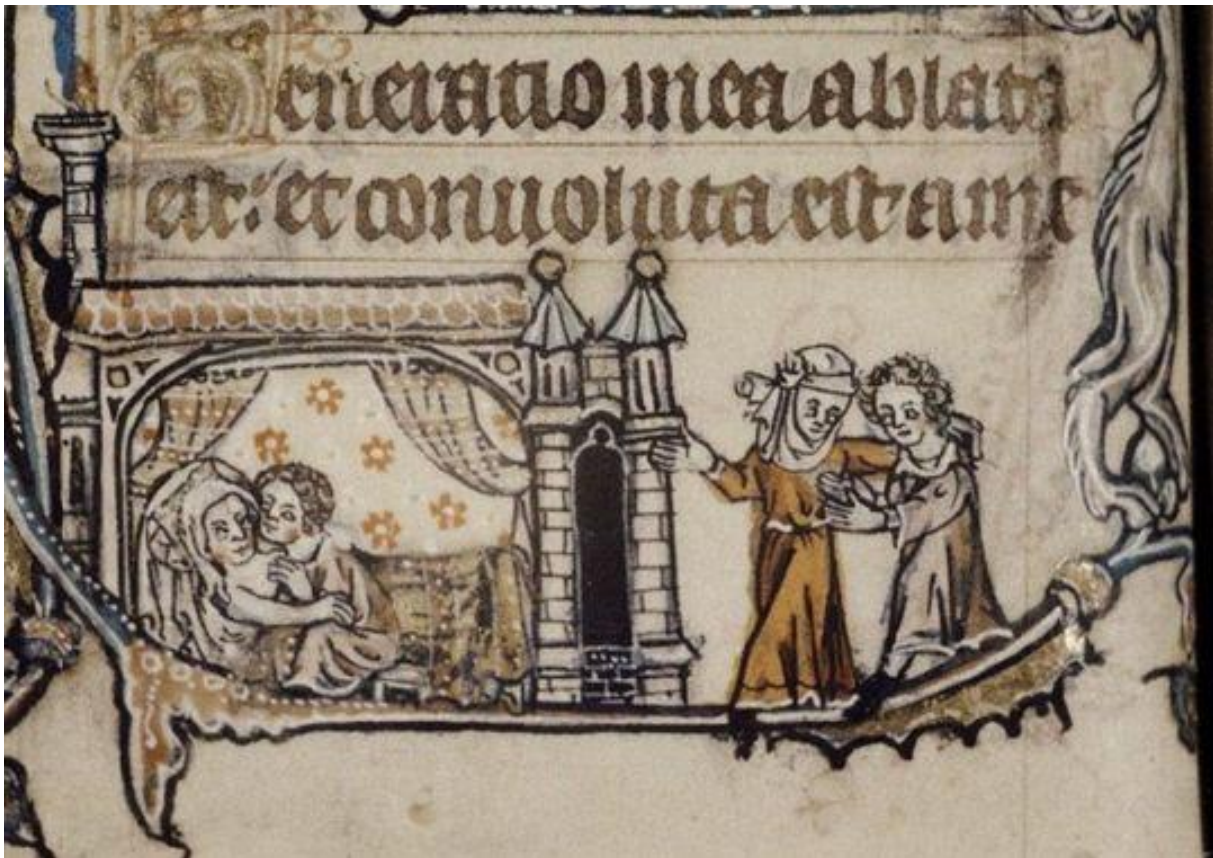 Generatio mea ablata
est: et convoluta est a me